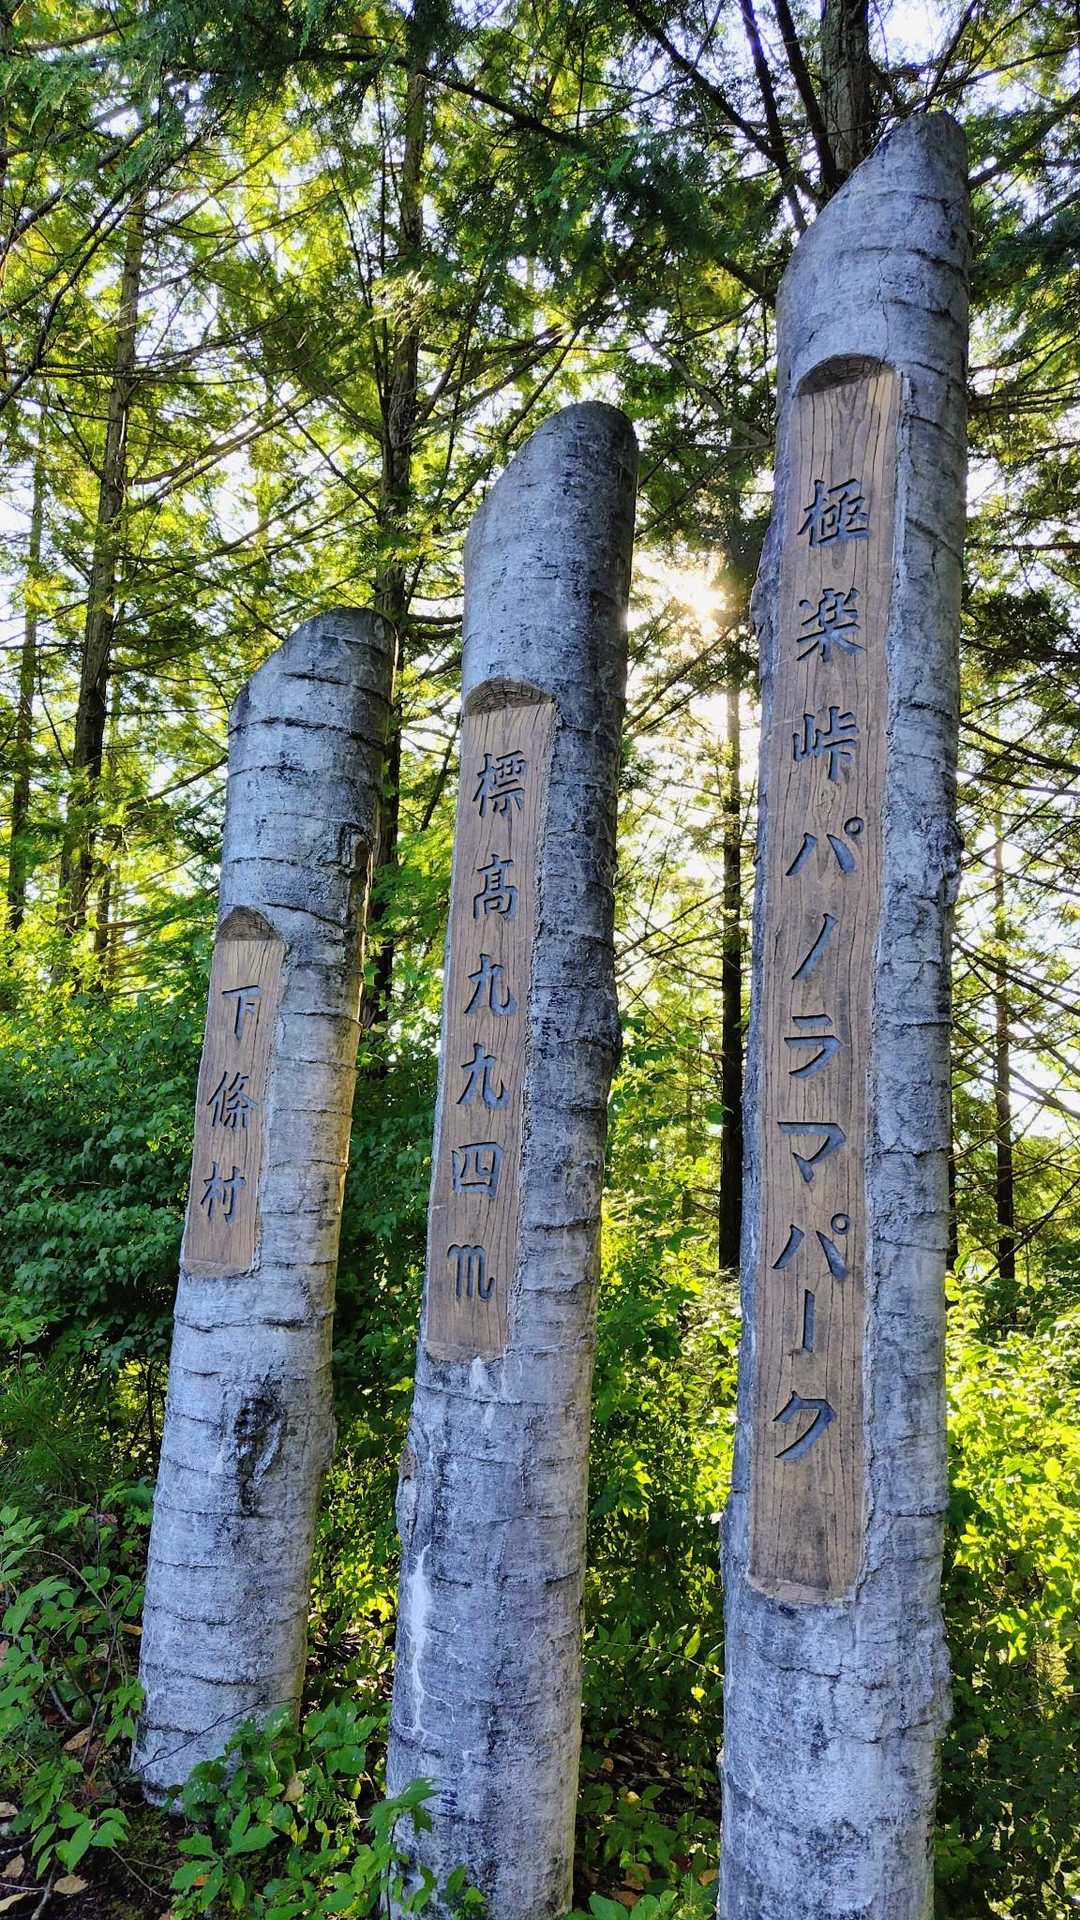 極楽峠パノラマパーク
標高九九四m
下條村